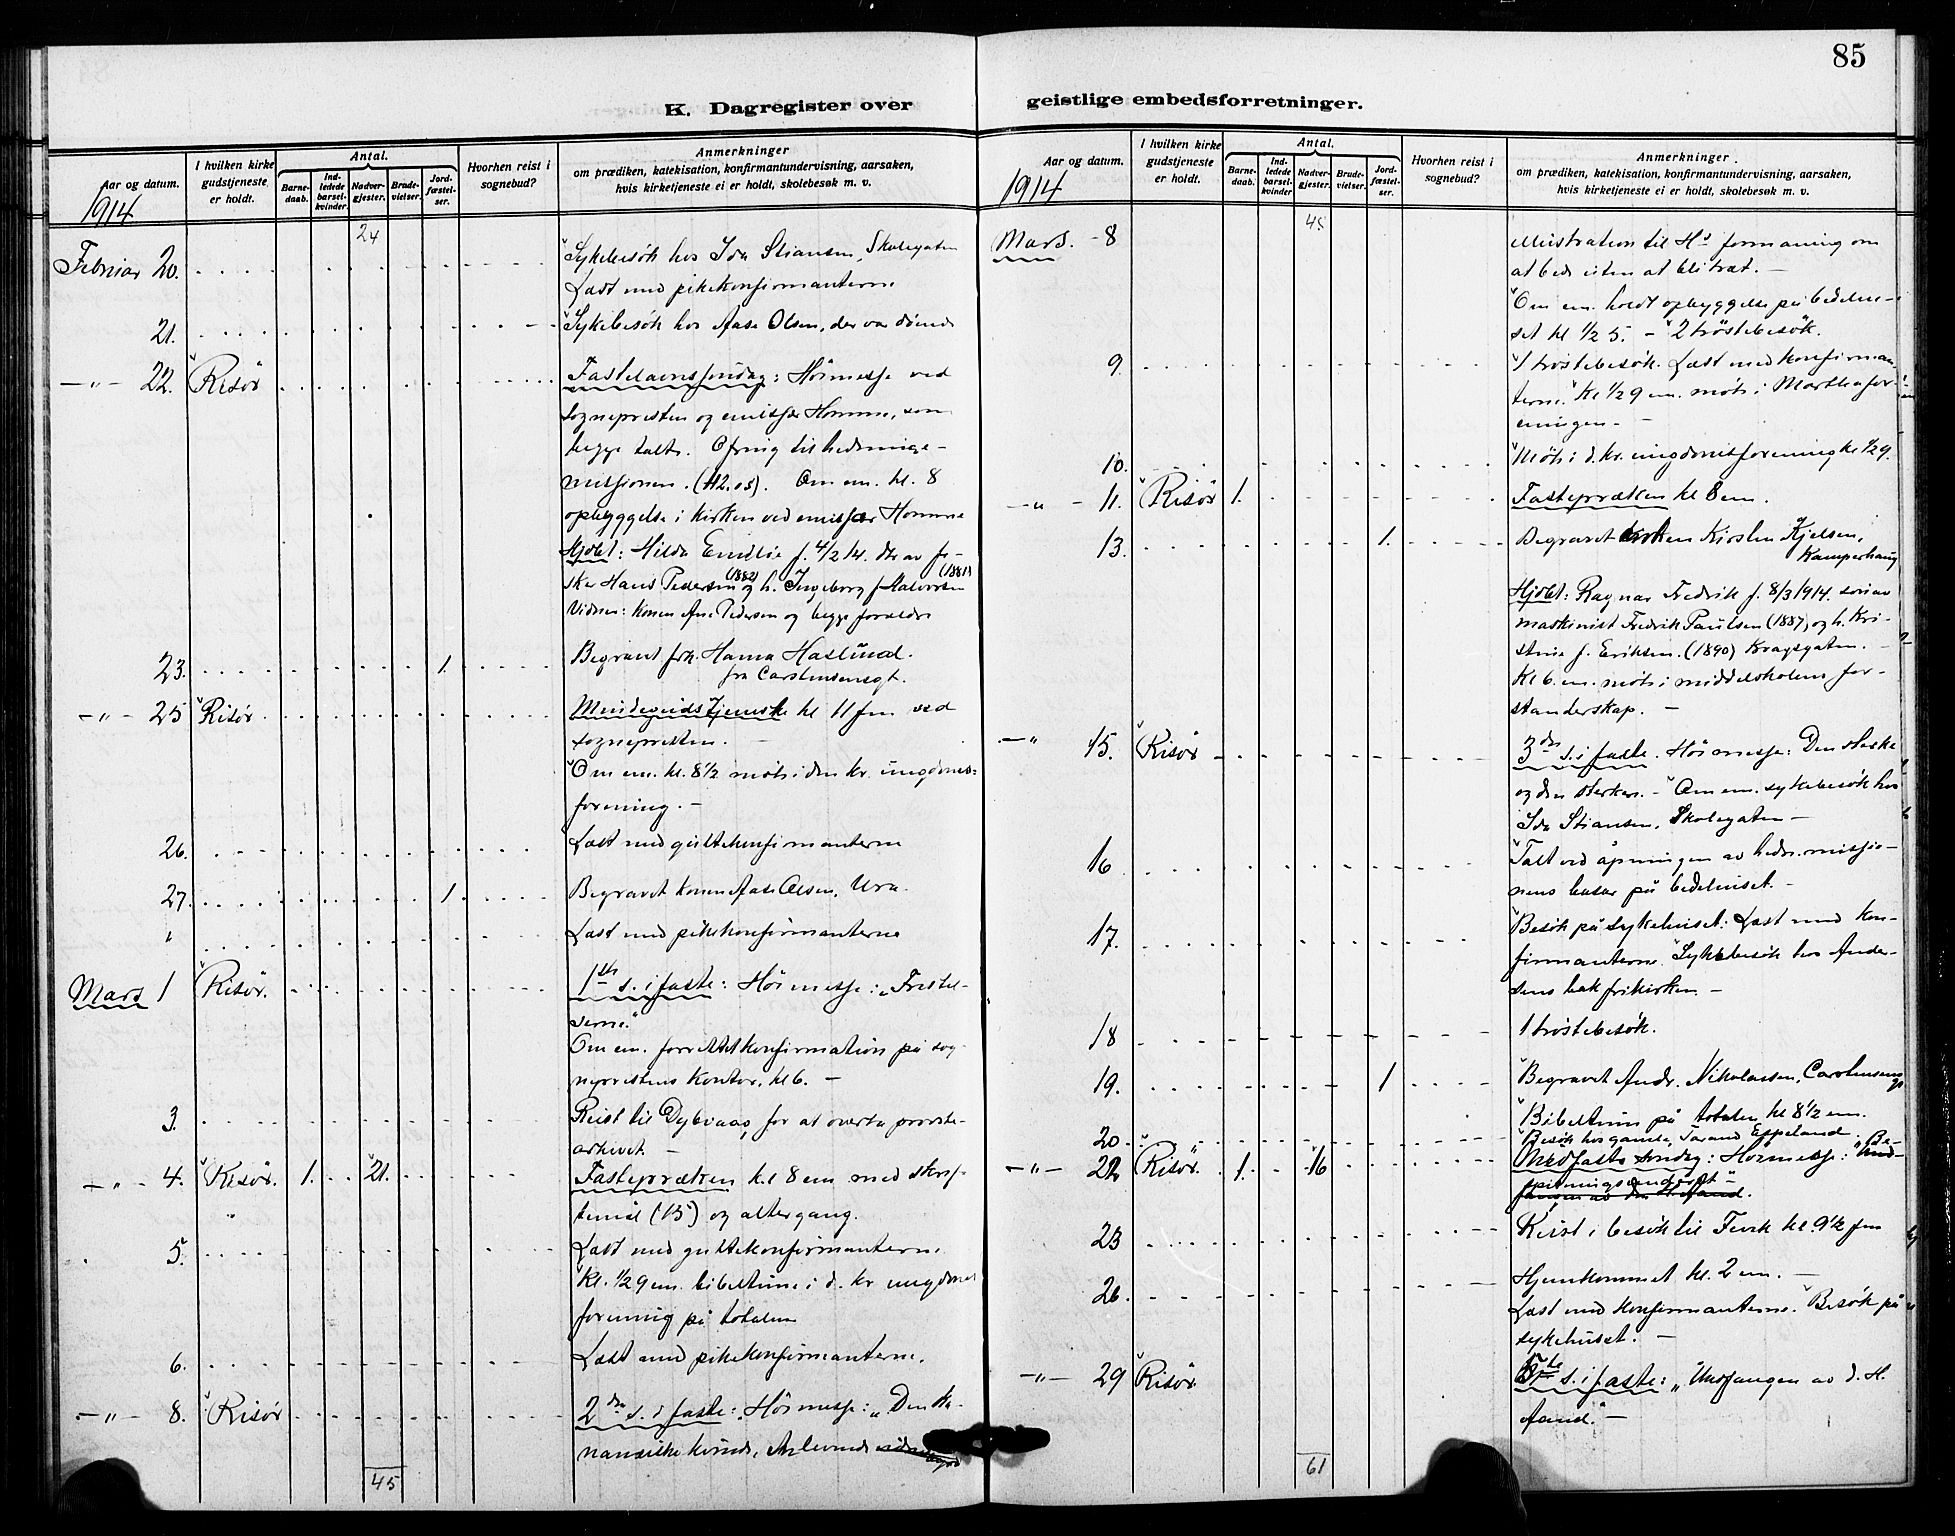 85
K. Dagregister over geistlige embedsforretninger.
Aar og datum.
I hvilken kirke gudstjeneste er holdt.
Antal.
Barnedaab.
Indledede barselkvinder.
Nadvergjester.
Brudevielser.
Jordfæstelser.
Hvorhen reist i sognebud?
Anmerkninger
om prædiken, katekisation, konfirmantundervisning, aarsaken,
hvis kirketjeneste ei er holdt, skolebesøk m. v.
1914
24
Februar 20. Sykebesök hos Ida Stiansen, Skolegaten
Læst med pikekonfirmanterne
21. Sykebesök hos Aase Olsen, der var döende
-"- 22. Risör Fastelavnssöndag: Höimesse ved
sognepresten og emissær Homme, som
begge talte. Ofring til hedninge-
missionen. (42.05). Om em. kl. 8
opbyggelse i kirken ved emissær Homme
Hjdbt: Hilda Emilie f. 4/2 14. dtr av fi-
sker Hans Pedersen (1882) og h. Ingeborg f Halvorsen (1881)
Vidner: konen Ane Pedersen og begge forældre
23. 1. Begravet frk. Hanna Haslund.
fra Carstensensgt.
-"- 25 Risör Mindegudstjeneste kl 11 fm ved
sognepresten. -
Om em. kl. 8 1/2 möte i den kr. ungdoms-
forening. -
26. Læst med guttekonfirmanterne
27. 1. Begravet konen Aase Olsen, Ura.
" Læst med pikekonfirmanterne
Mars 1 Risör. 1ste s. i faste: Höimesse: „Fristel-
serne."
Om em. forrettet konfirmation på sog-
neprestens kontor, kl 6. -
3. Reist til Dybvaag for at overta provste-
arkivet. -
-"- 4. Risör. 1. 21. Fastepræken kl 8 em med skrif-
temål (15) og altergang.
5. Læst med guttekonfirmanterne.
Kl. 1/2 9 em. bibeltime i d. kr ungdoms
forening på totalen
6. Læst med pikekonfirmanterne.
-"- 8. Risör 2den s. i faste: Höimesse: „Den ka-
nanæiske kvinde. Anlevnede
45
Aar og datum.
I hvilken kirke gudstjeneste er holdt.
Antal.
Barnedaab.
Indledede barselkvinder
Nadvergjester.
Brudevielser.
Jordfæstelser.
Hvorhen reist i sognebud?
Anmerkninger.
om prædiken, katekisation, konfirmantundervisning, aarsaken,
hvis kirketjeneste ei er holdt, skolebesøk m. v.
1914
45
Mars. - 8 illustration til Hs formaning om
at bede uten at bli træt. -
Om em. holdt opbyggelse på bedehu-
set kl 1/2 5. - 2 tröstebesök.
9. 1 tröstebesök. Læst med konfirman-
terne. Kl 1/2 9 em. möte i Marthafor-
eningen. -
10. Möte i d. kr. ungdomsforening kl 1/2 9.
-"- 11. Risör 1. Fastepræken kl 8 em.
13. 1. Begravet enken Kirsten Kjelsen,
Kamperhaug
Hjdbt: Ragnar Fredrik f. 8/3 1914. sön av
maskinist Fredrik Paulsen (1887) og h. Kri-
stine f. Eriksen. (1890) Kragsgaten. -
Kl 6. em. möte i middelskolens for-
standerskap. -
-" 15. Risör 3die s. i faste. Höimesse: Den sterke
og den sterkere. - Om em. sykebesök hos
Ida Stiansen, Skolegaten -
16 Talt ved åpningen av hedn.missio-
nens basar på bedehuset. -
17. Besök på sykehuset. Læst med kon-
firmanterne. Sykebesök hos Ander-
sens bak frikirken. -
18 1 tröstebesök.
19. 1 Begravet Andr. Nikolaisen, Carstensensgt
Bibeltime på totalen kl 8 1/2 em.
20. Besök hos gamle Tarand Eppeland
-"- 22 Risör. 1. 16 Midfaste söndag: Höimesse: „Be-
spisningsunderet" -
23 Reist i besök til Tveit kl. 9 1/2 fm
26. Hjemkommet kl. 2 em. -
Læst med konfirmanterne. Besök på
sykehuset. -
-"- 29 Risör 5te s. i faste: „Undfangen av d. H.
Aand." -
61